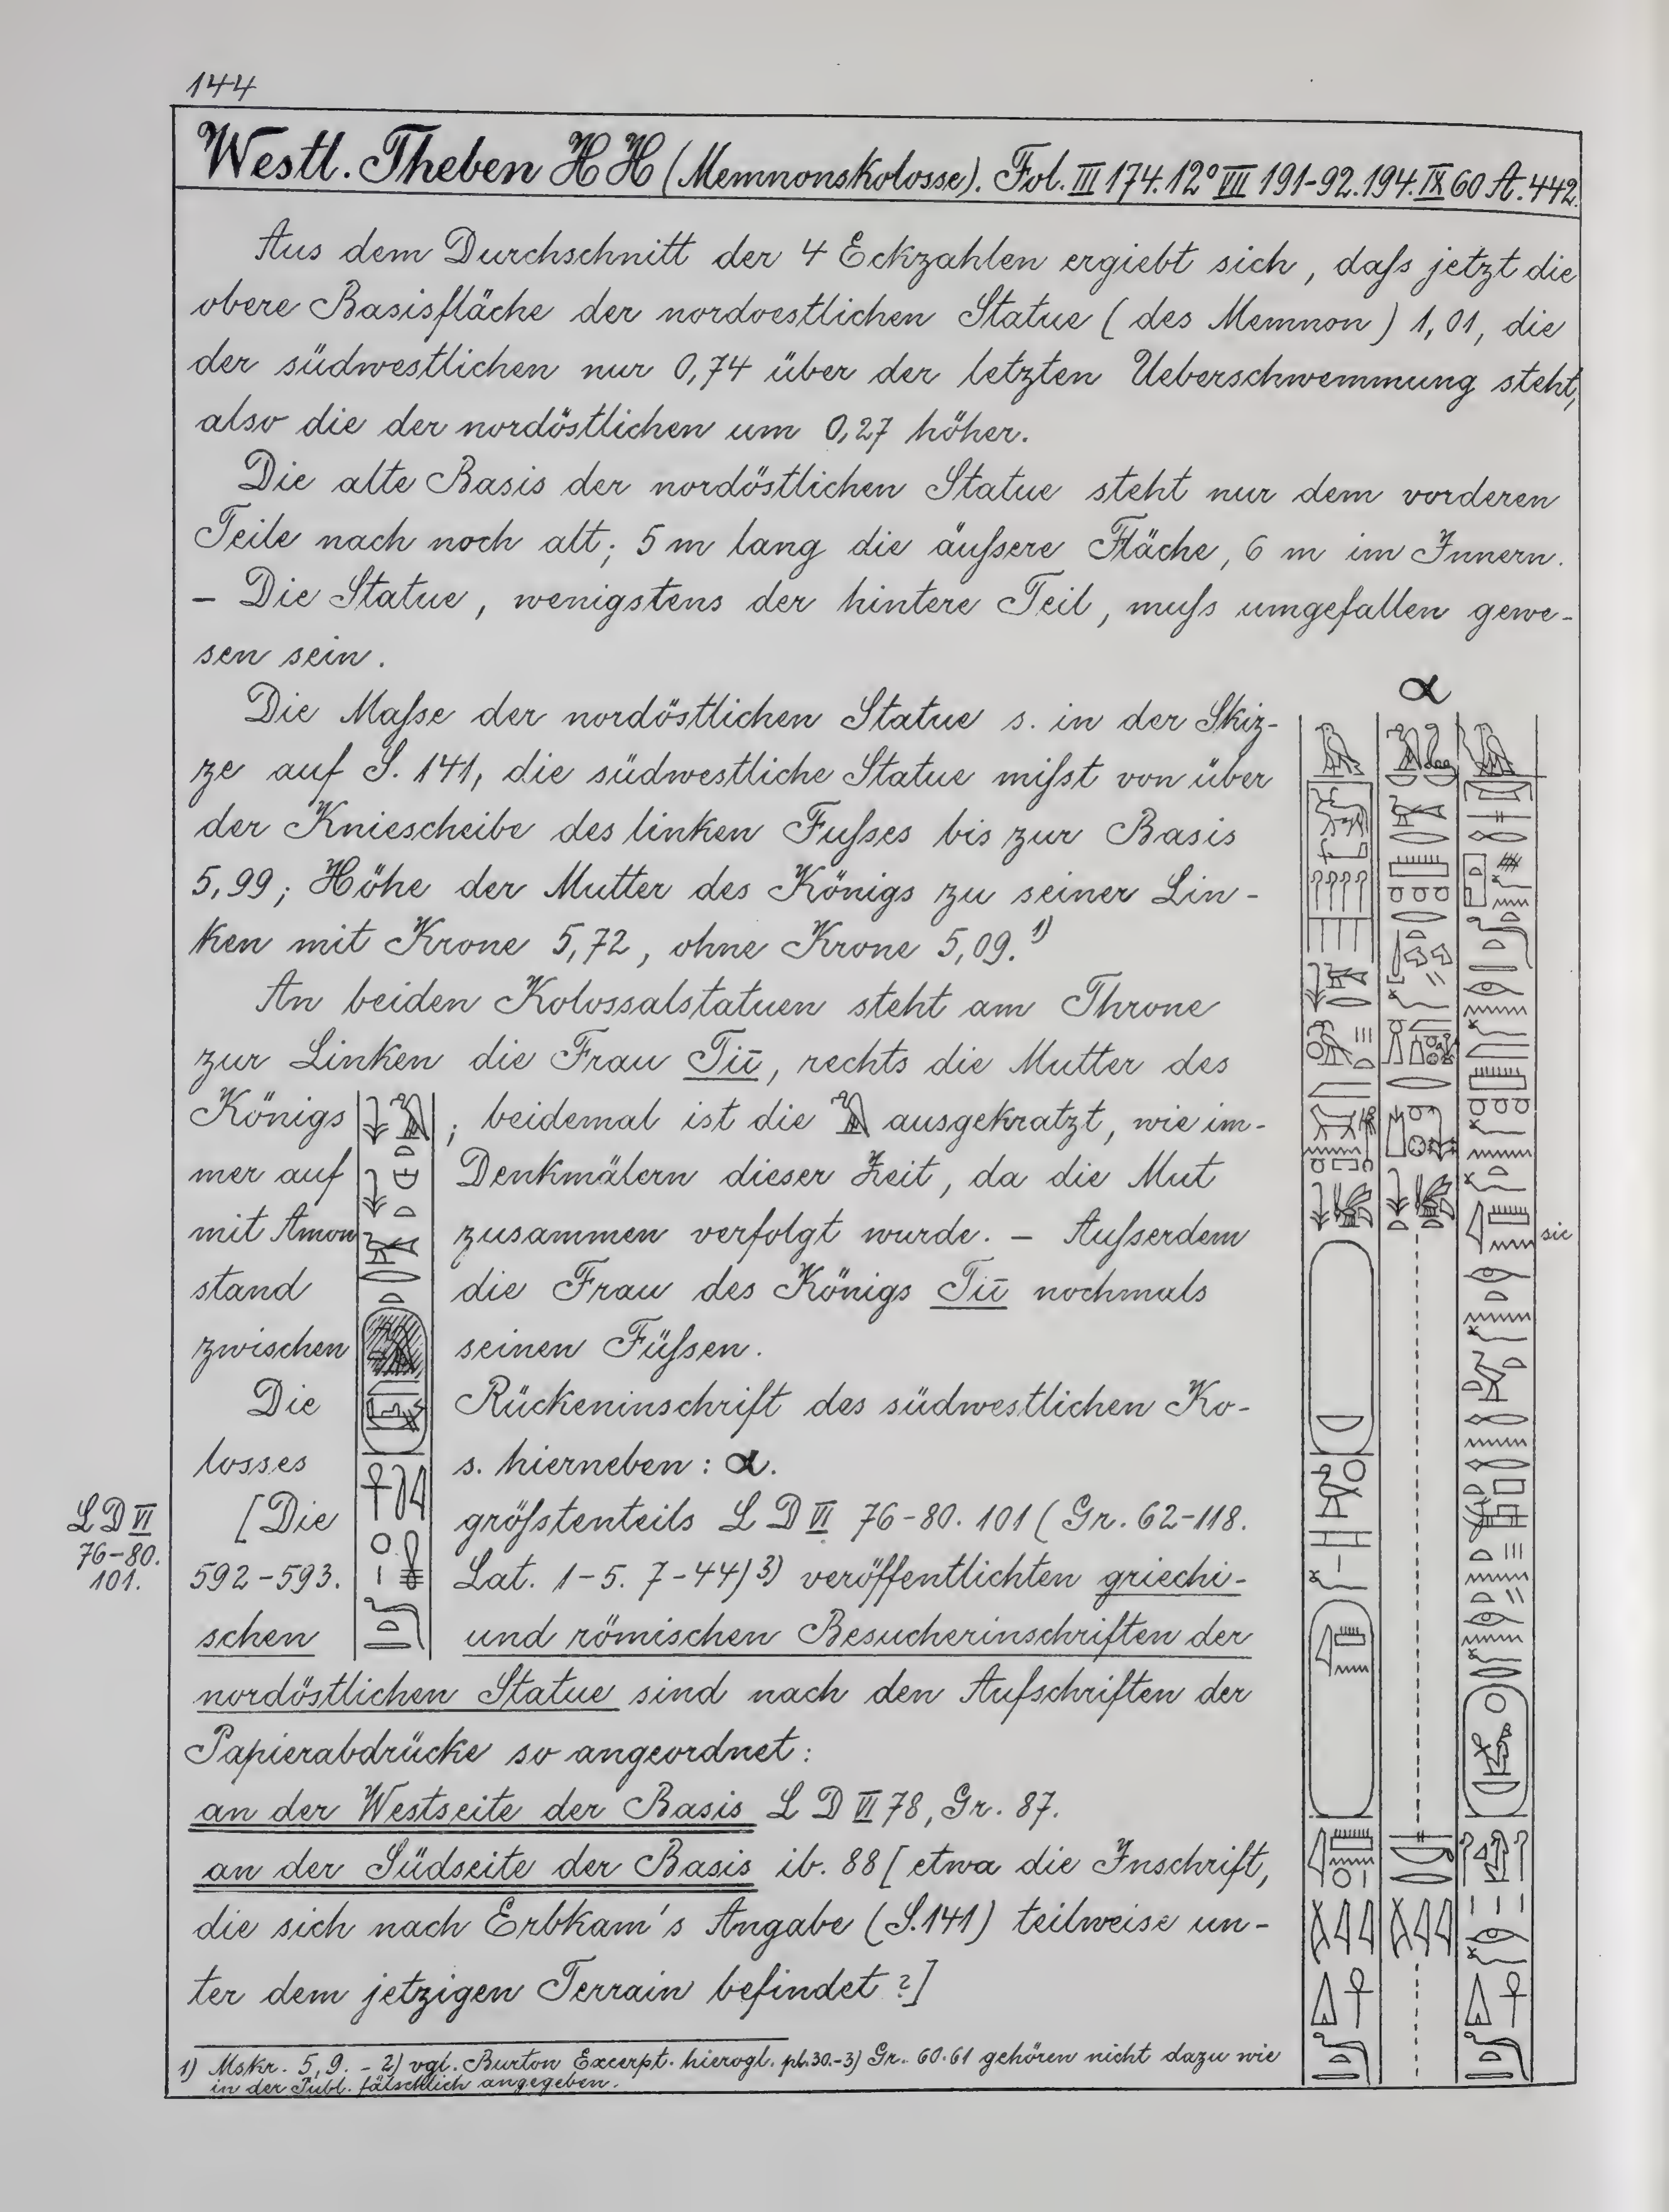 144
Westl. Theben H H (Memnonskolosse). Fol. III 174. 12° VII 191-92. 194. IX 60 A. 442.
Aus dem Durchschnitt der 4 Eckzahlen ergiebt sich, daſs jetzt die
obere Basisfläche der nordoestlichen Statue (des Memnon) 1,01, die
der südwestlichen nur 0,74 über der letzten Ueberschwemmung steht,
also die der nordöstlichen um 0,27 höher.
Die alte Basis der nordöstlichen Statue steht nur dem vorderen
Teile nach noch alt; 5 m lang die äuſsere Fläche, 6 m im Innern.
– Die Statue, wenigstens der hintere Teil, muſs umgefallen gewe-
sen sein.
Die Maſse der nordöstlichen Statue s. in der Skiz-
ze auf S. 141, die südwestliche Statue miſst von über
der Kniescheibe des linken Fuſses bis zur Basis
5,99; Höhe der Mutter des Königs zu seiner Lin-
ken mit Krone 5,72, ohne Krone 5,09. 1)
An beiden Kolossalstatuen steht am Throne
zur Linken die Frau Tii, rechts die Mutter des
Königs ; beidemal ist die ausgekratzt, wie im-
mer auf Denkmälern dieser Zeit, da die Mut
mit Amon zusammen verfolgt wurde. – Auſserdem
stand die Frau des Königs Tii nochmals
zwischen seinen Füſsen.
Die Rückeninschrift des südwestlichen Ko-
losses s. hierneben: α.
[Die gröſstenteils L D VI 76-80. 101 (Gr. 62-118.
592-593. Lat. 1-5. 7-44) 3) veröffentlichten griechi-
schen und römischen Besucherinschriften der
nordöstlichen Statue sind nach den Aufschriften der
Papierabdrücke so angeordnet:
an der Westseite der Basis L D VI 78, Gr. 87.
an der Südseite der Basis ib. 88 [etwa die Inschrift,
die sich nach Erbkam's Angabe (S. 141) teilweise un-
ter dem jetzigen Terrain befindet?]
L D VI
76-80.
101.
α
sic
1) Mskr. 5,9. – 2) vgl. Burton Excerpt. hierogl. pl. 30. – 3) Gr. 60. 61 gehören nicht dazu wie
in der Publ. fälschlich angegeben.